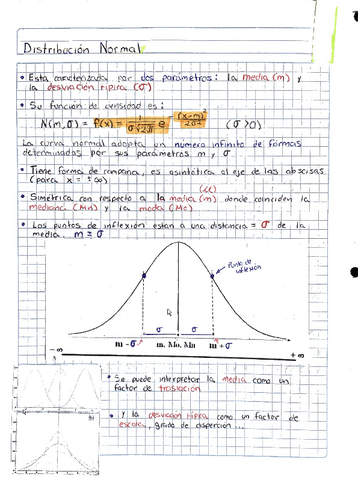 Distribución Normal
• Esta caracterizada por dos parámetros: la media (m) y
la desviación típica (σ)
• Su función de densidad es:
N(m,σ) = f(x) = 1/(σ√2π) e^-(x-m)²/2σ² (σ>0)
La curva normal adopta un número infinito de formas
determinadas por sus parámetros m y σ
• Tiene forma de campana, es asintótica al eje de las abscisas
(para x = ±∞)
(μ)
• Simétrica con respecto a la media (m) donde coinciden la
mediana (Mn) y la moda (Mo)
• Los puntos de inflexión están a una distancia = σ de la
media. m ± σ
Punto de
inflexión
σ σ
m - σ m, Mo, Mn m + σ
- ∞ + ∞
• Se puede interpretar la media como un
factor de traslación
• Y la desviación típica como un factor de
escala, grado de dispersión ...